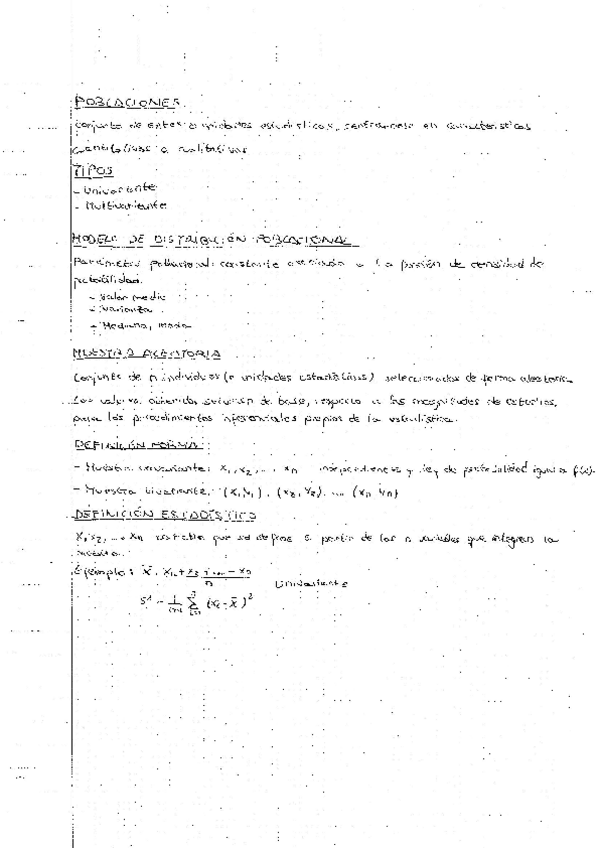 POBLACIONES
Conjunto de entes o unidades estadísticas, centrándose en características
cuantitativas o cualitativas
TIPOS
- Univariante
- Multivariante
MODELO DE DISTRIBUCIÓN POBLACIONAL
Parámetro poblacional: constante asociada a la función de densidad de
probabilidad.
- Valor medio
- Varianza
- Mediana, moda
MUESTRA ALEATORIA
Conjunto de n individuos (o unidades estadísticas) seleccionados de forma aleatoria.
Los valores obtenidos servirán de base, respecto a las magnitudes de estudio,
para los procedimientos inferenciales propios de la estadística.
DEFINICIÓN FORMAL:
- Muestra univariante: X1, X2, ... Xn independientes y ley de probabilidad igual a f(x).
- Muestra bivariante: (X1, Y1), (X2, Y2), ... (Xn, Yn)
DEFINICIÓN ESTADÍSTICO
X1, X2, ... Xn variable que se define a partir de las n variables que integran la
muestra.
Ejemplo: X̄ = X1 + X2 + ... Xn / n Univariante
S² = 1/(n-1) Σ (Xi - X̄)²